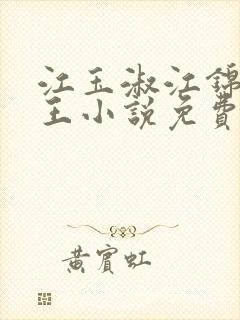 江玉淑江锦
王小説免費
黄賓虹